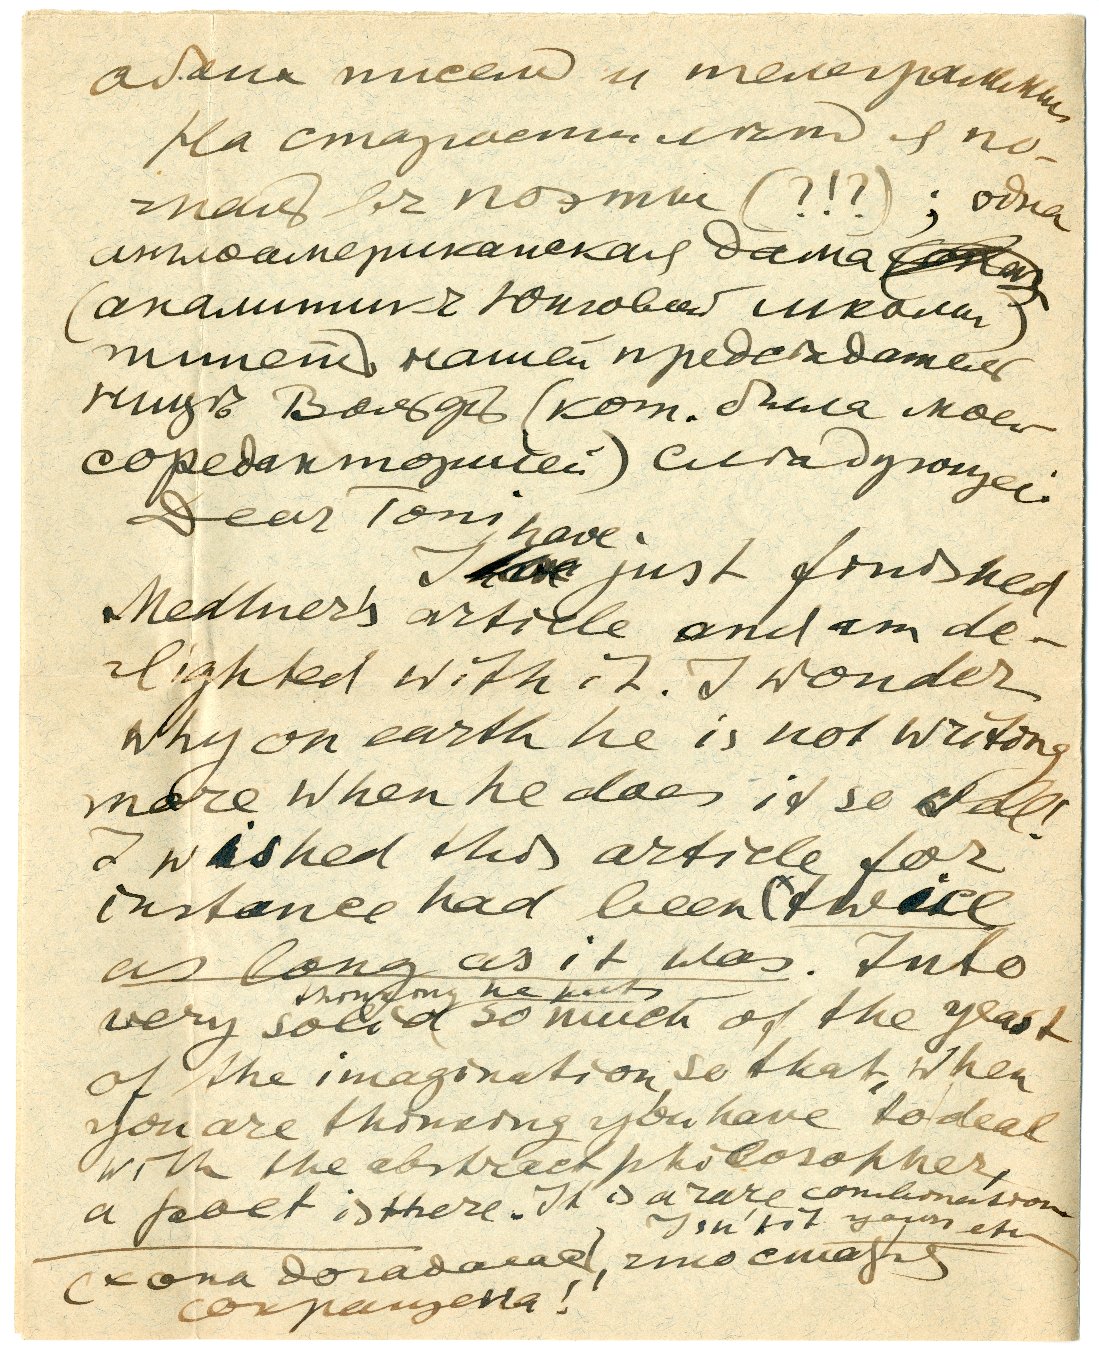 обмѣнъ писемъ и телеграммы
На старости лѣтъ я по-
палъ въ поэты (?!?); одна
англоамериканская дама
(аналитикъ Юнговой школы)
пишетъ нашей предсѣдатель
ницѣ Вольфъ (кот. была моей
соредакторшей) слѣдующее:
Dear Toni
have
I just finished
Medtner's article and am de-
lighted with it. I wonder
why on earth he is not writing
more when he does it so well!
I wished this article for
instance had been (twice
as long as it was. Into
thinking he puts
very solid so much of the yeast
of the imagination, so that, when
you are thinking you have to deal
with the abstract philosopher,
a poet is there. It is a rare combination
Isn't it yours etc
(x она догадалась, что статья
сокращена!